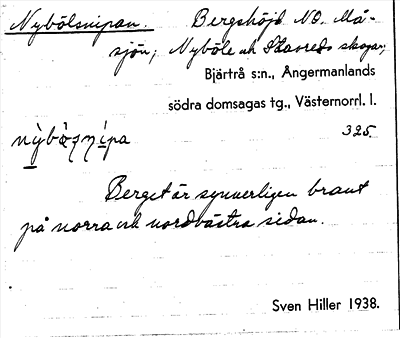 Nybölsnipan. Bergshöjd NO. Må-
sjön; Nyböle och Skavreds skogar;
Bjärtrå s:n., Ångermanlands
södra domsagas tg., Västernorrl. l.
325.
Berget är synnerligen brant
på norra och nordvästra sidan.
Sven Hiller 1938.